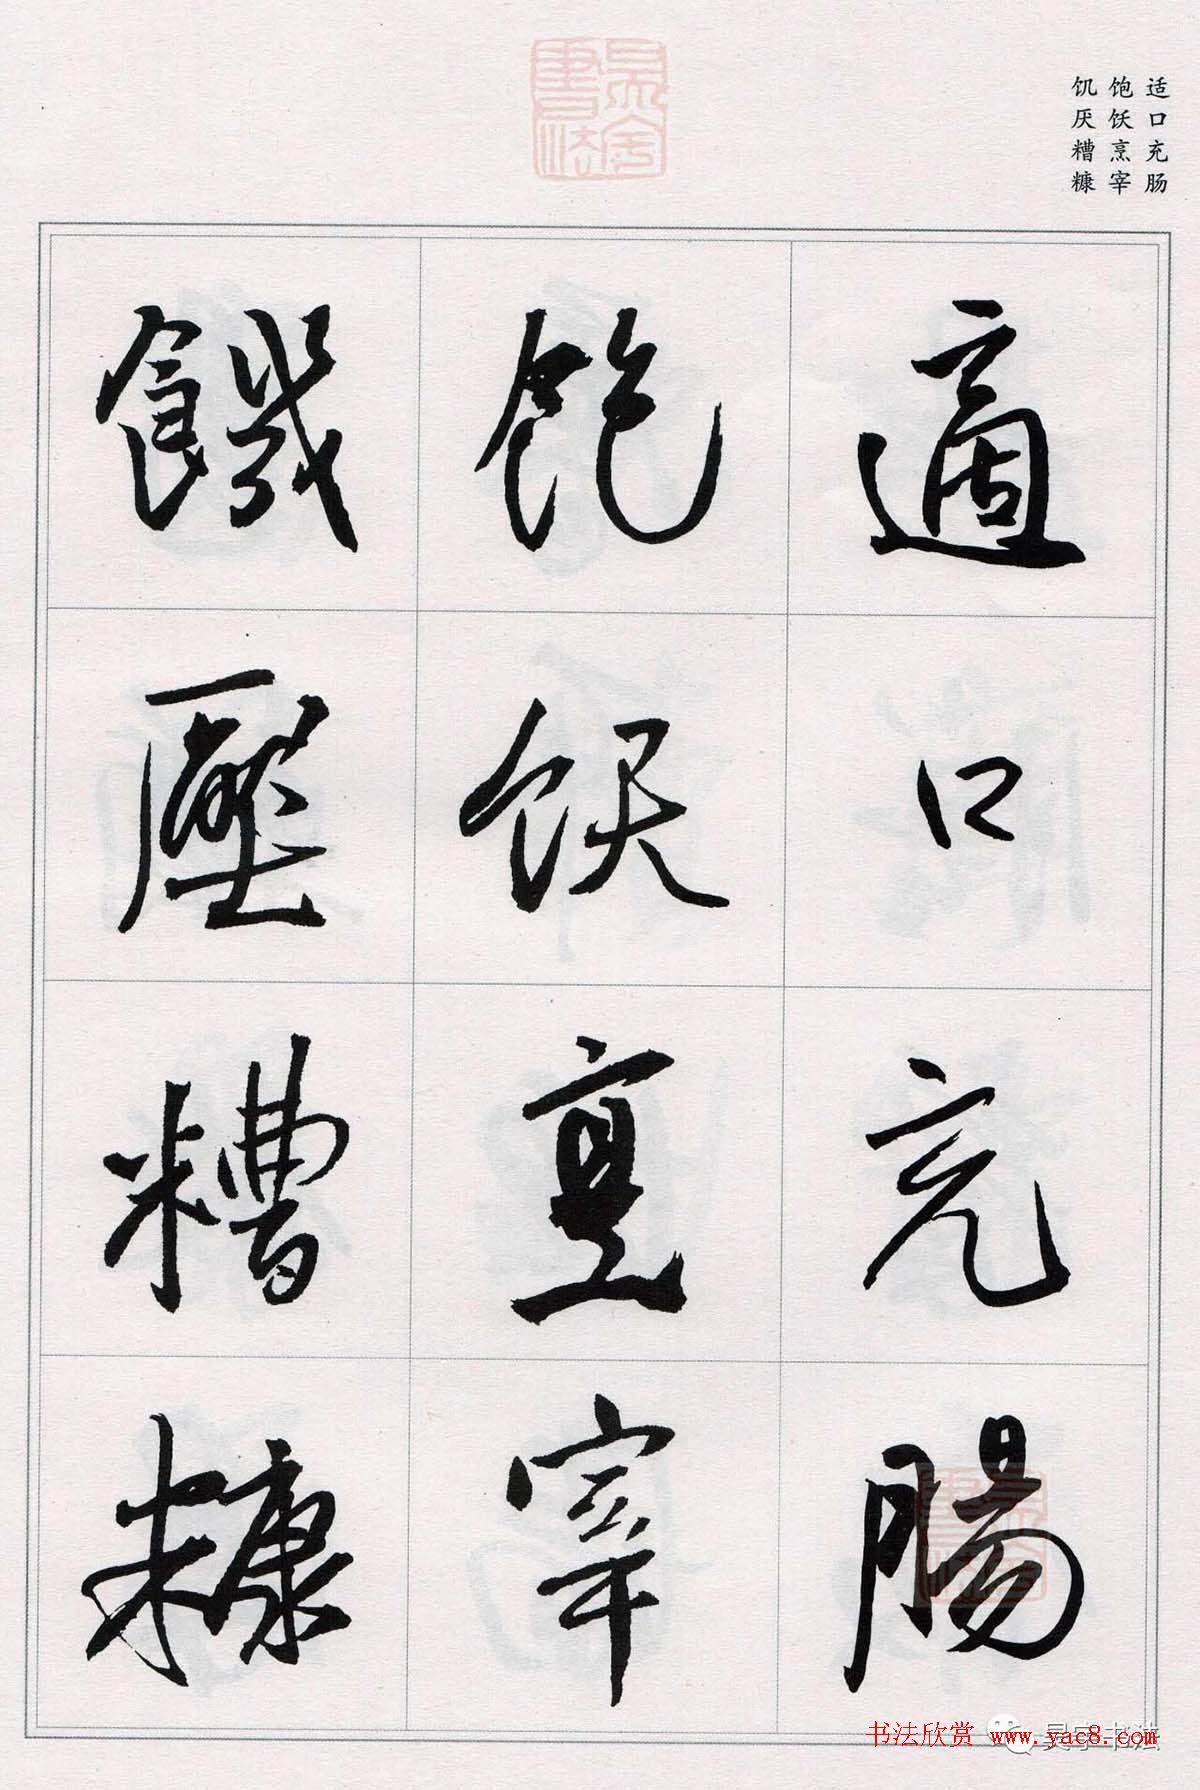 昊宇
書法
适口充肠
饱饫烹宰
饥厌糟糠
適口充腸
飽飫烹宰
饑壓糟糠
书法欣赏 www.yac8.com
昊宇书法